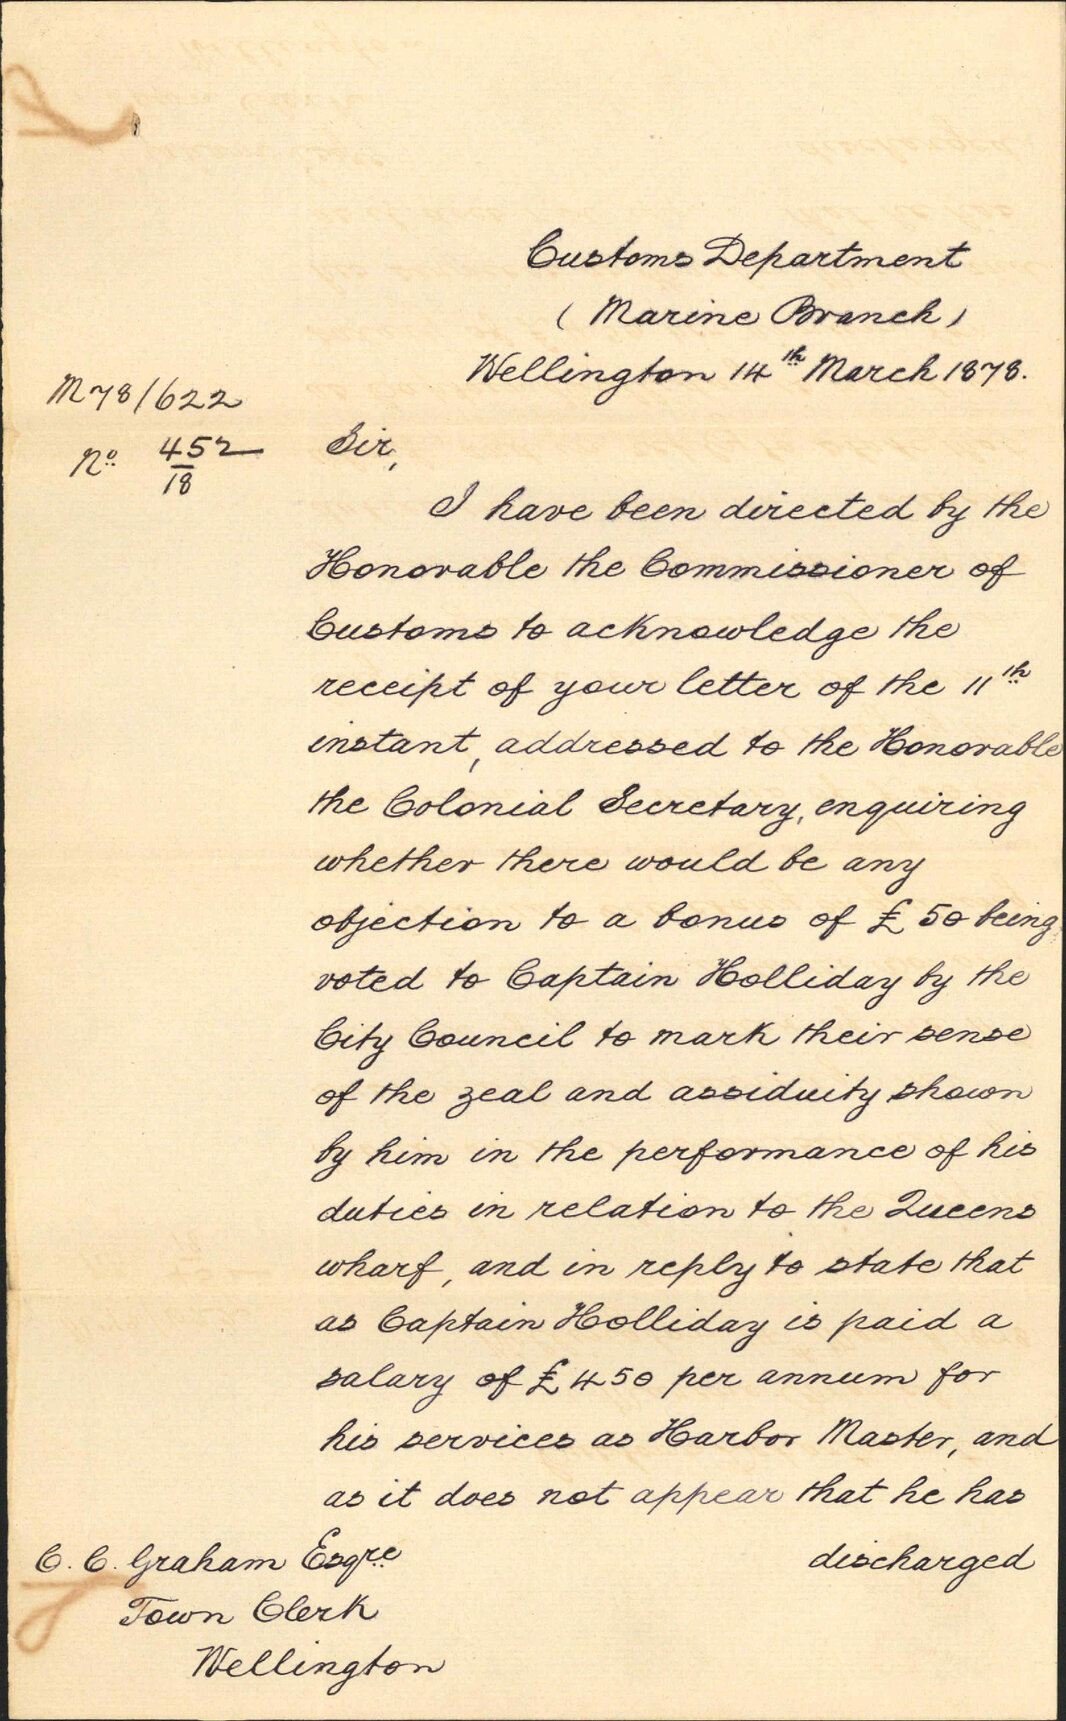 Customs Department
(Marine Branch)
Wellington 14th March 1878.
M78/622
No 452
18
Sir,
I have been directed by the
Honorable the Commissioner of
Customs to acknowledge the
receipt of your letter of the 11th
instant, addressed to the Honorable
the Colonial Secretary, enquiring
whether there would be any
objection to a bonus of £50 being
voted to Captain Holliday by the
City Council to mark their sense
of the zeal and assiduity shown
by him in the performance of his
duties in relation to the Queens
wharf, and in reply to state that
as Captain Holliday is paid a
salary of £450 per annum for
his services as Harbor Master, and
as it does not appear that he has
discharged
C. C. Graham Esqre
Town Clerk
Wellington